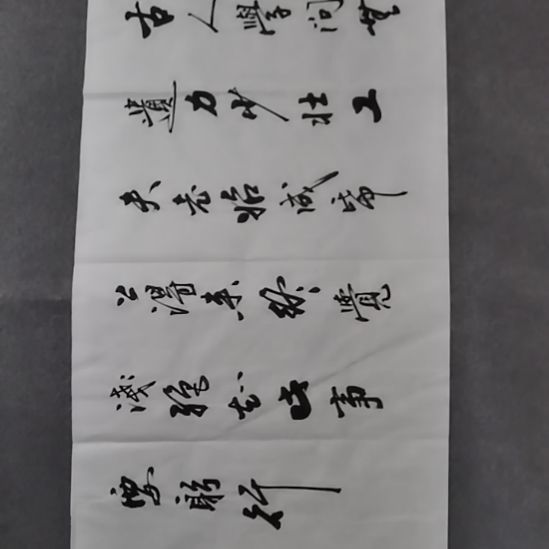 古人學問無
遺力少壯工
夫老始成帋
上得來終覺
淺絕知此事
要躬行